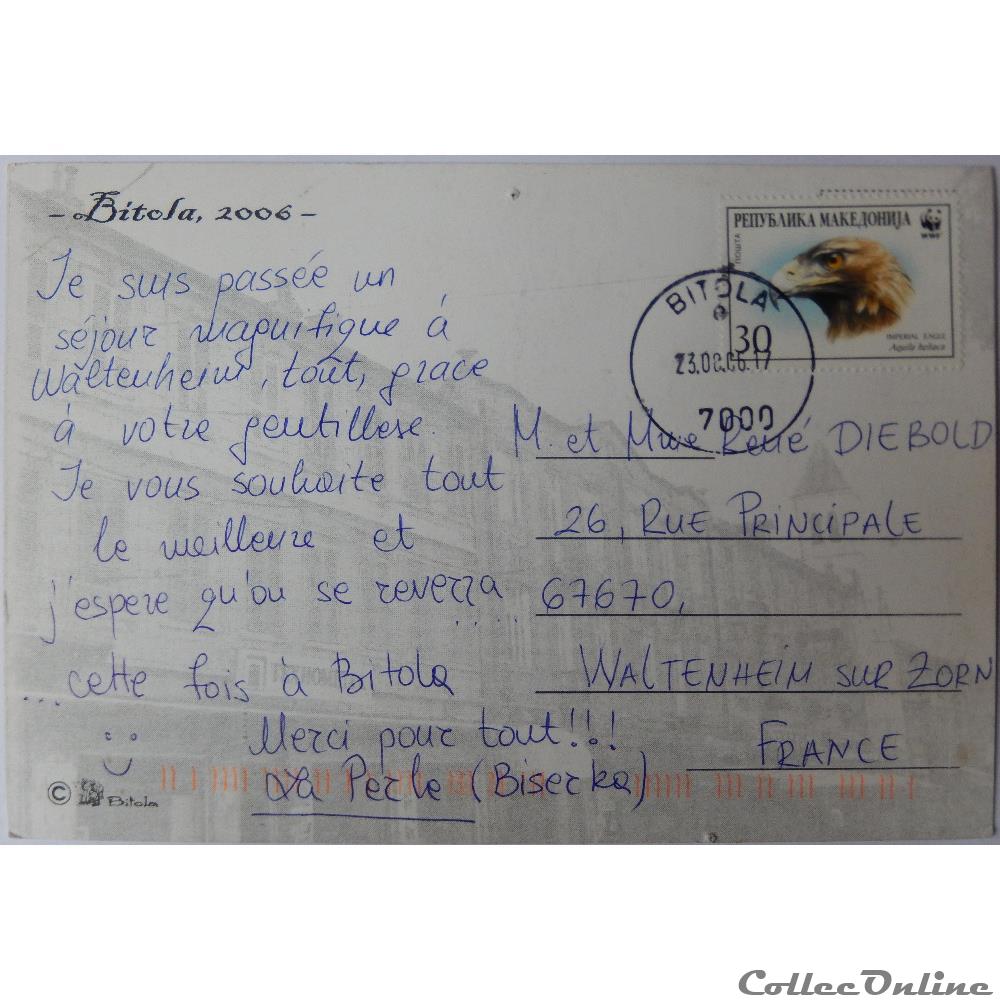 - Bitola, 2006 -
РЕПУБЛИКА МАКЕДОНИЈА
WWF
ПОШТА
30
IMPERIAL EAGLE
Aquila heliaca
BITOLA
7000
Je suis passée un
séjour magnifique à
Waltenheim, tout, grace
à votre gentillese.
Je vous souhaite tout
le meilleure et
j'espere qu'on se reverra.....
...cette fois à Bitola
Merci pour tout!!!
La Perle (Biserka)
M. et Mme René DIEBOLD
26, RUE PRINCIPALE
67670,
WALTENHEIM SUR ZORN
FRANCE
© Bitola
CollecOnline